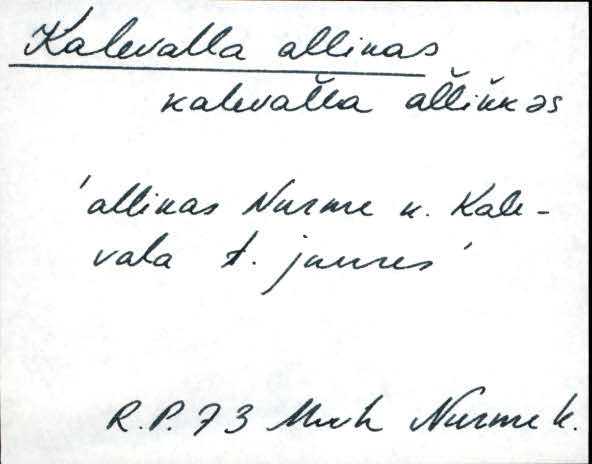 Kalevalla allikas
kalevaľľa aľľiǩǩəs
'allikas Nurme k. Kale-
vala t. juures'
R.P. 73 Muh Nurme k.